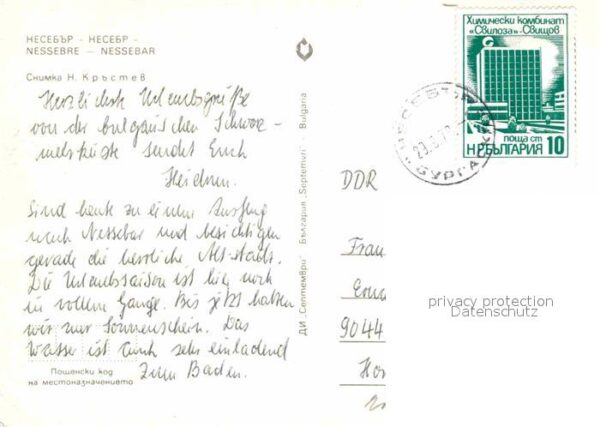 НЕСЕБЪР - НЕСЕБР -
NESSEBRE — NESSEBAR
Снимка Н. Кръстев
Herzlichste Urlaubsgrüße
von der bulgarischen Schwarz-
meerküste sendet Euch
Heidrun.
Sind heute zu einem Ausflug
nach Nessebar und besichtigen
gerade die herrliche Alt-stadt.
Die Urlaubssaison ist hier noch
in vollem Gange. Bis jetzt hatten
wir nur Sonnenschein. Das
Wasser ist auch sehr einladend
zum Baden.
Пощенски код
на местоназначението
ДИ „Септември" България „Septemvri" Bulgaria
Химически комбинат
«Свилоза»-Свищов
поща ст
НР БЪЛГАРИЯ 10
НЕСЕБЪР
БУРГАСКИ
DDR
Frau
9044
privacy protection
Datenschutz